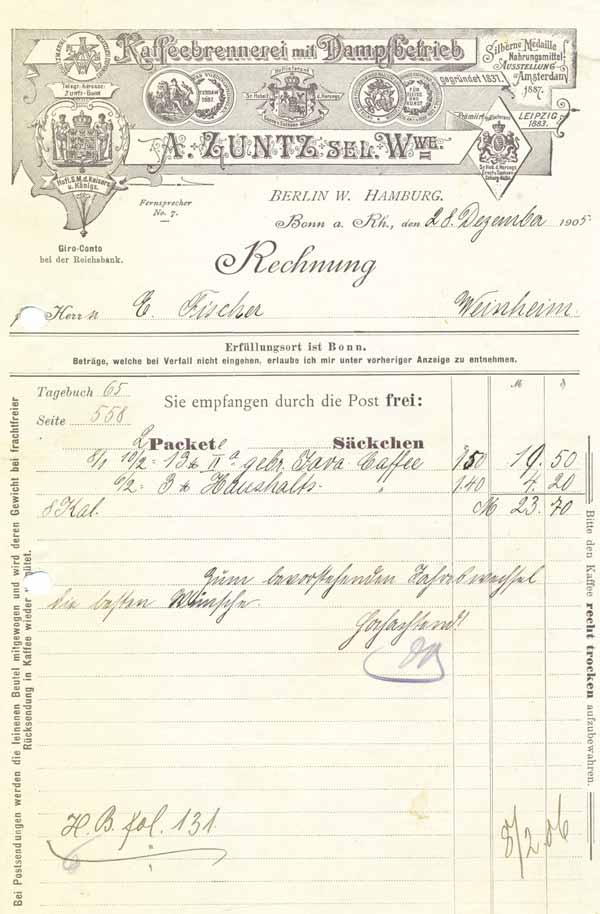 Kaffeebrennerei mit Dampfbetrieb
gegründet 1837.
Silberne Medaille
Nahrungsmittel-
Ausstellung
Amsterdam
1887.
Telegr.-Adresse:
Zuntz-Bonn
Hoflieferant
Sr. Hoheit d. Herzogs
FÜR FLEISS UND KUNST
Prämiirt
LEIPZIG
1883.
A. ZUNTZ SEL. WWE
Hofl. S. M. d. Kaisers
u. Königs.
Fernsprecher
No. 7.
BERLIN W. HAMBURG.
Bonn a. Rh., den 28. Dezember 1905
Giro-Conto
bei der Reichsbank.
Rechnung
Herrn E. Fischer Weinheim.
Erfüllungsort ist Bonn.
Beträge, welche bei Verfall nicht eingehen, erlaube ich mir unter vorheriger Anzeige zu entnehmen.
Tagebuch 65
Seite 558
Sie empfangen durch die Post frei:
M ₰
2 Packete Säckchen
8/1 10/2 = 13 ℔ IIa gebr. Java Caffee 150 19.50
6/2 = 3 ℔ Haushalts- " 140 4.20
8 Kal. M 23.70
Zum bevorstehenden Jahreswechsel
die besten Wünsche.
Hochachtend!
H. B. fol. 131.
8/2.06
Bei Postsendungen werden die leinenen Beutel mitgewogen und wird deren Gewicht bei frachtfreier
Rücksendung in Kaffee wieder vergütet.
Bitte den Kaffee recht trocken aufzubewahren.